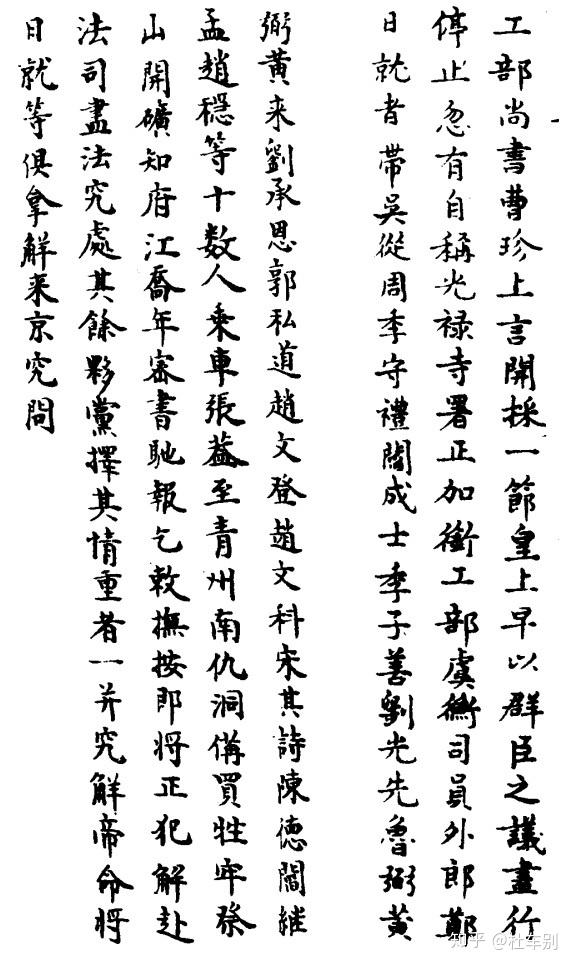 工部尚書曹珍上言開採一節皇上早以群臣之議盡行
停止忽有自稱光禄寺署正加銜工部虞衡司員外郎鄭
日就者帶吳從周季守禮閻成士季子善劉光先魯弼黃
弼黃来劉承恩郭私道趙文登趙文科宋其詩陳德閻継
孟趙穩等十数人乗車張葢至青州南仇洞備買牲牢祭
山開礦知府江喬年審書馳報乞敕撫按即将正犯解赴
法司盡法究處其餘夥黨擇其情重者一并究解帝命将
日就等俱拿解来京究問
知乎 @杜车别